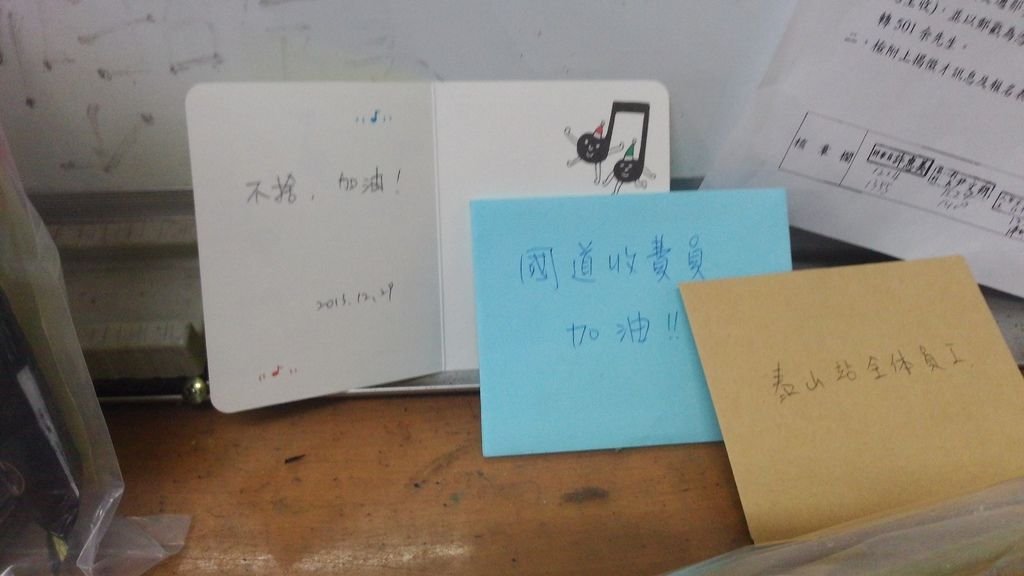 不捨，加油！
2013.12.29
國道收費員
加油!!
泰山站全体員工
轉 501 余先生。
二、檢附上揭徵才訊息及報名表
檔案欄